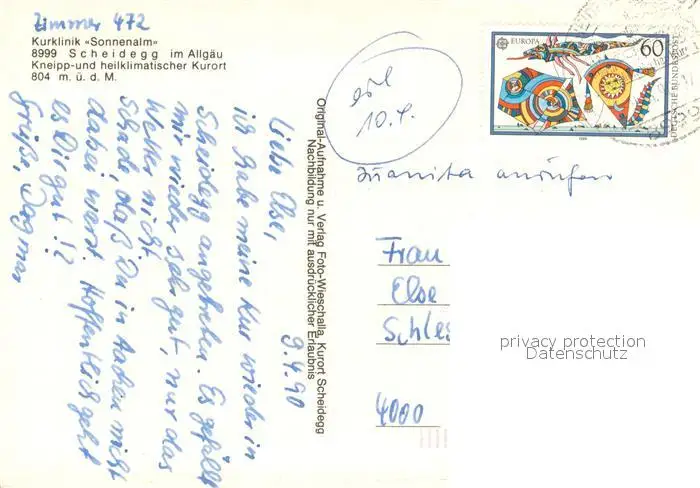 Zimmer 472
Kurklinik «Sonnenalm»
8999 Scheidegg im Allgäu
Kneipp-und heilklimatischer Kurort
804 m. ü. d. M.
9.4.90
Liebe Else,
ich habe meine Kur wieder in
Scheidegg angetreten. Es gefällt
mir wieder sehr gut, nur das
Wetter nicht.
Schad, daß Du in Aachen nicht
dabei warst. Hoffentlich geht
es Dir gut!?
Grüße, Dagmar
Original-Aufnahme u. Verlag Foto-Wieschalla, Kurort Scheidegg
Nachbildung nur mit ausdrücklicher Erlaubnis
10.4.
EUROPA
60
DEUTSCHE BUNDESPOST
Juanita anrufen
Frau
Else
Schles
4000
privacy protection
Datenschutz